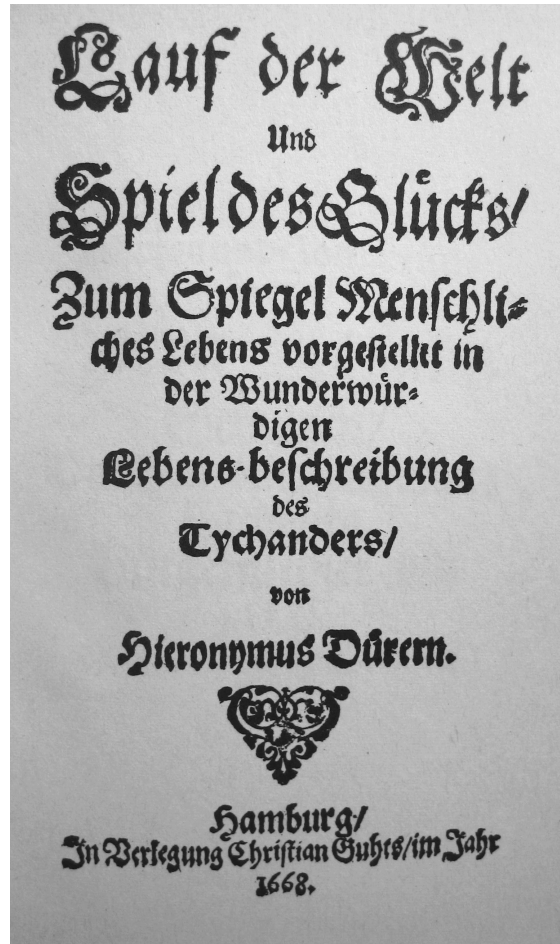 Lauf der Welt
Und
Spiel des Glücks/
Zum Spiegel Menschli=
ches Lebens vorgestellet in
der Wunderwür=
digen
Lebens-beschreibung
des
Tychanders/
von
Hieronymus Dürern.
Hamburg/
In Verlegung Christian Guhts/im Jahr
1668.